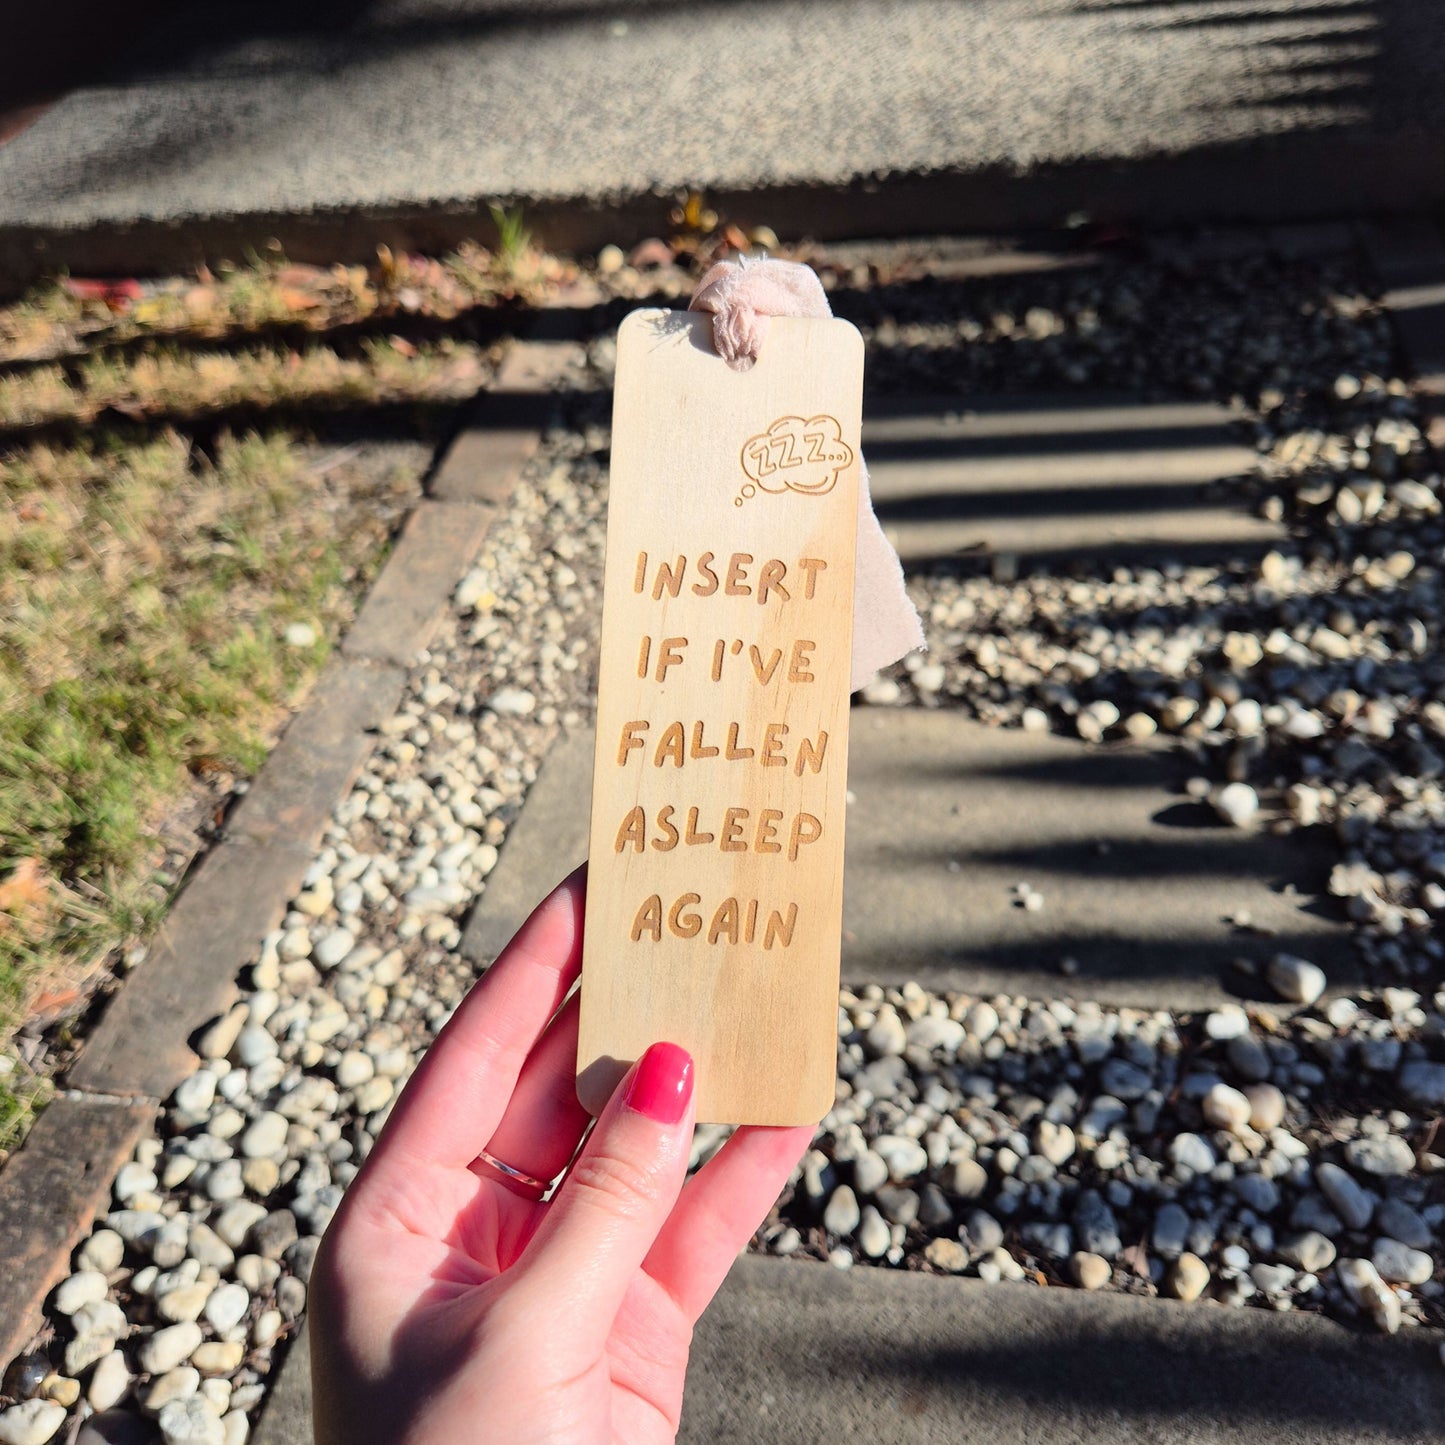 ZZZ..
INSERT
IF I'VE
FALLEN
ASLEEP
AGAIN